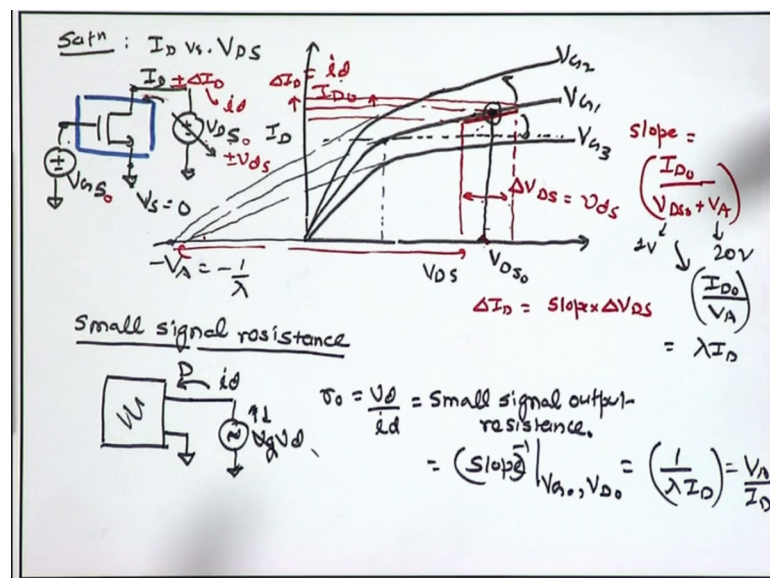 Satⁿ : I_D vs. V_DS
I_D ± ΔI_D
i_d
V_DS₀
± v_ds
V_GS₀
V_S = 0
ΔI_D = i_d
I_D₀
I_D
V_G2
V_G1
V_G3
ΔV_DS = v_ds
V_DS
V_DS₀
-V_A = -1/λ
slope =
(I_D₀ / (V_DS₀ + V_A))
1V
20V
(I_D₀ / V_A)
= λI_D
ΔI_D = slope × ΔV_DS
Small signal resistance
D
i_d
r_o = v_d / i_d = small signal output-
resistance.
= (slope)⁻¹ |V_G₀, V_D₀ = (1 / λI_D) = V_A / I_D